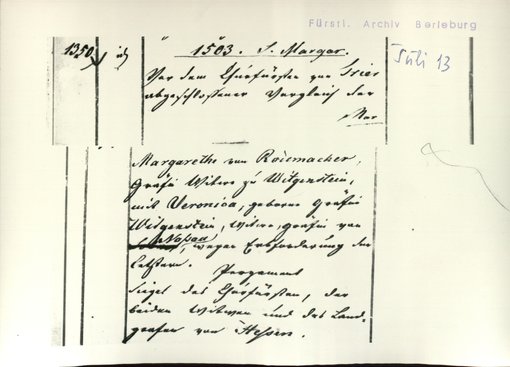 Fürstl. Archiv Berleburg
1350
1503. S. Margar.
Juli 13
Vor dem Churfürsten von Trier
abgeschlossener Vergleich der
Mar
Margarethe von Roiemacher,
Gräfin Witwe zu Witgenstein,
mit Veronica, geborne Gräfin
Witgenstein, Witwe, gräfin von
Nassau
, wegen Erbforderung der
Letztern.
Pergament
Siegel des Churfürsten, der
beiden Witwen und des Land-
grafen von Hessen.